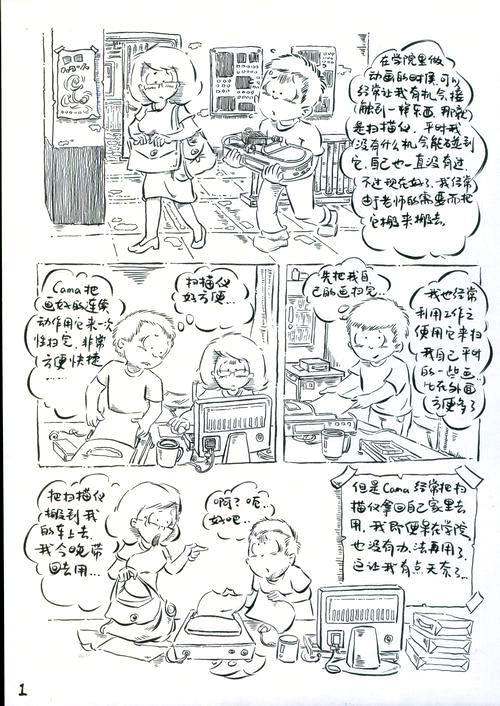 在学院里做
动画的时候,可以
经常让我有机会接
触到一样东西,那就
是扫描仪,平时我
没有什么机会能碰到
它,自己也一直没有过,
不过现在好了,我经常
由于老师的需要而把
它搬来搬去。
Cama把
画好的连续
动作用它来一次
性扫完,非常
方便快捷
......
扫描仪
好方便...
先把我自
己的画扫完...
我也经常
利用工作之
便用它来扫
我自己平时
的一些画...
比在外面
方便多了
把扫描仪
搬到我
的车上去,
我今晚带
回去用...
啊?呃..
好吧...
但是Cama经常把扫
描仪拿回自己家里去
用,我即便呆在学院
也没有办法再用了,
这让我有点无奈了...
1